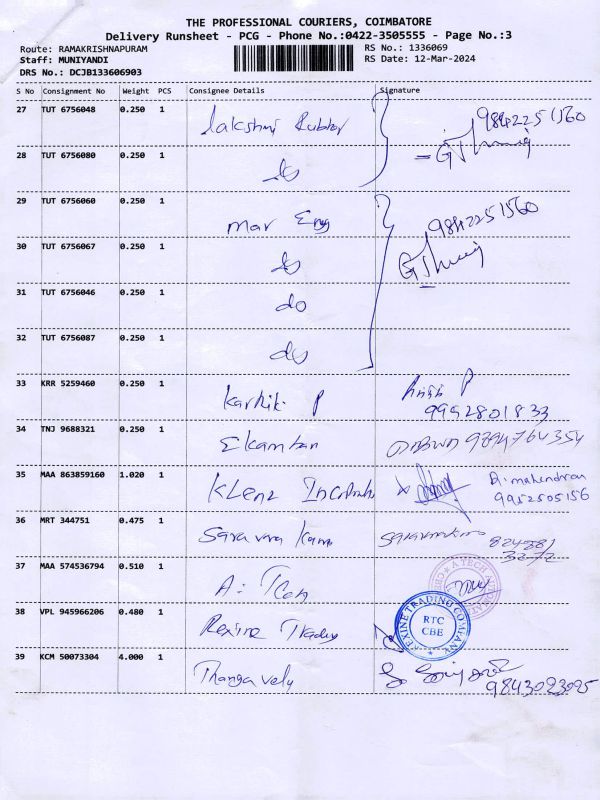 THE PROFESSIONAL COURIERS, COIMBATORE
Delivery Runsheet - PCG - Phone No.:0422-3505555 - Page No.:3
Route: RAMAKRISHNAPURAM RS No.: 1336069
Staff: MUNIYANDI RS Date: 12-Mar-2024
DRS No.: DCJB133606903
S No Consignment No Weight PCS Consignee Details Signature
27 TUT 6756048 0.250 1 Lakshmi 9842251560
28 TUT 6756080 0.250 1 do
29 TUT 6756060 0.250 1 Mar Eng 9842251560
30 TUT 6756067 0.250 1 do
31 TUT 6756046 0.250 1 do
32 TUT 6756087 0.250 1 do
33 KRR 5259460 0.250 1 Karthik P
9952801833
34 TNJ 9688321 0.250 1 9894764354
35 MAA 863859160 1.020 1 Klenz A. mahendran
9952505156
36 MRT 344751 0.475 1 Saravana
37 MAA 574536794 0.510 1 A. A TECH
38 VPL 945966206 0.480 1 Rexine Trading REXINE TRADING COMPANY
RTC
CBE
39 KCM 50073304 4.000 1 Thangavelu
9843023095